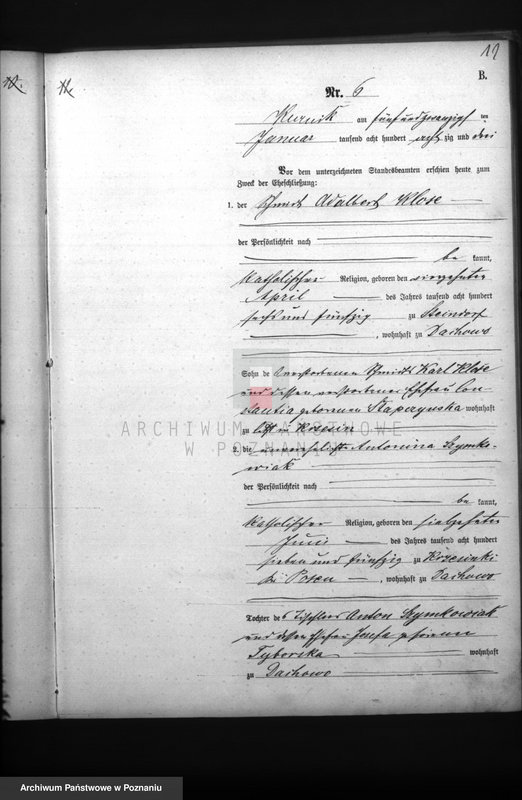 12.
12.
19
B.
Nr. 6
Kurnik am fünfundzwanzigs ten
Januar tausend acht hundert acht zig und drei
Vor dem unterzeichneten Standesbeamten erschien heute zum
Zweck der Eheschließung:
1. der Schmidt Adalbert Klose
der Persönlichkeit nach
be kannt,
katholischer Religion, geboren den vierzehnten
April des Jahres tausend acht hundert
sechs und fünfzig zu Steindorf
, wohnhaft zu Dachowo
Sohn des verstorbenen Schmidts Karl Klose
und dessen verstorbener Ehefrau Con-
stantia geborenen wohnhaft
zu
2. die unverehelichte Antonina Szymko-
wiak
der Persönlichkeit nach
be kannt,
katholischer Religion, geboren den siebzehnten
Juni des Jahres tausend acht hundert
sieben und fünfzig zu Krzesinki
bei Posen , wohnhaft zu Dachowo
Tochter des Tischlers Anton Szymkowiak
und dessen Ehefrau Josefa geborenen
Tyborska wohnhaft
zu Dachowo
ARCHIWUM PAŃSTWOWE
W POZNANIU
Archiwum Państwowe w Poznaniu